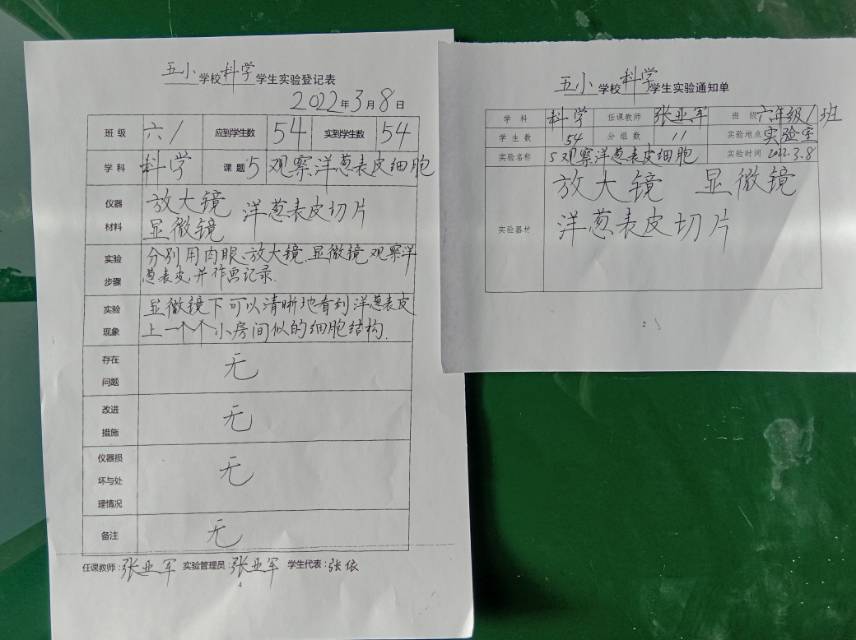 五小学校科学学生实验登记表
2022年3月8日
班级 六1 应到学生数 54 实到学生数 54
学科 科学 课题 5 观察洋葱表皮细胞
仪器材料 放大镜 洋葱表皮切片
显微镜
实验步骤 分别用肉眼、放大镜、显微镜观察洋
葱表皮,并作画记录.
实验现象 显微镜下可以清晰地看到洋葱表皮
上一个个小房间似的细胞结构.
存在问题 无
改进措施 无
仪器损坏与处理情况 无
备注 无
任课教师:张亚军 实验管理员:张亚军 学生代表:张依
4
五小学校科学学生实验通知单
学科 科学 任课教师 张亚军 班级 六年级1班
学生数 54 分组数 11 实验地点 实验室
实验名称 5 观察洋葱表皮细胞 实验时间 2022.3.8
实验器材 放大镜 显微镜
洋葱表皮切片